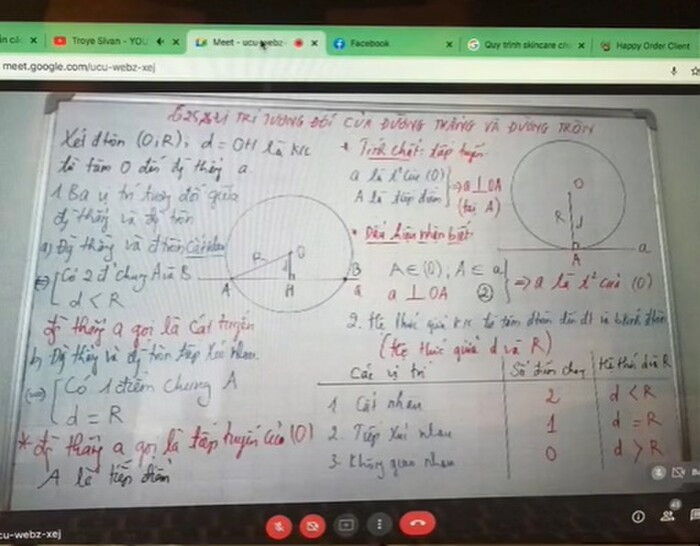 Troye Sivan - YOU
Meet - ucu-webz-
Facebook
Quy trình skincare ch
Happy Order Client
meet.google.com/ucu-webz-xej
TRÍ TƯƠNG ĐỐI CỦA ĐƯỜNG THẲNG VÀ ĐƯỜNG TRÒN
Xét đtròn (O;R); d = OH là k/c
từ tâm O đến đg thẳng a
1. Ba vị trí tương đối giữa
đg thẳng và đg tròn
a) Đg thẳng và đtròn cắt nhau
Có 2 đ' chung A và B
d < R
đg thẳng a gọi là cát tuyến
b) Đg thẳng và đg tròn tiếp xúc nhau
Có 1 điểm chung A
d = R
* đg thẳng a gọi là tiếp tuyến của (O)
A là tiếp điểm
R
O
A
H
B
a
* Tính chất tiếp tuyến
a là t² của (O)
A là tiếp điểm
=> a ⊥ OA
(tại A)
* Dấu hiệu nhận biết
A ∈ (O); A ∈ a
a ⊥ OA
=> a là t² của (O)
O
R
A
a
2. Hệ thức giữa k/c từ tâm đtròn đến đt và bkính đtròn
(Hệ thức giữa d và R)
Các vị trí
Số điểm chung
Hệ thức d và R
1 Cắt nhau
2
d < R
2. Tiếp xúc nhau
1
d = R
3. Không giao nhau
0
d > R
cu-webz-xej